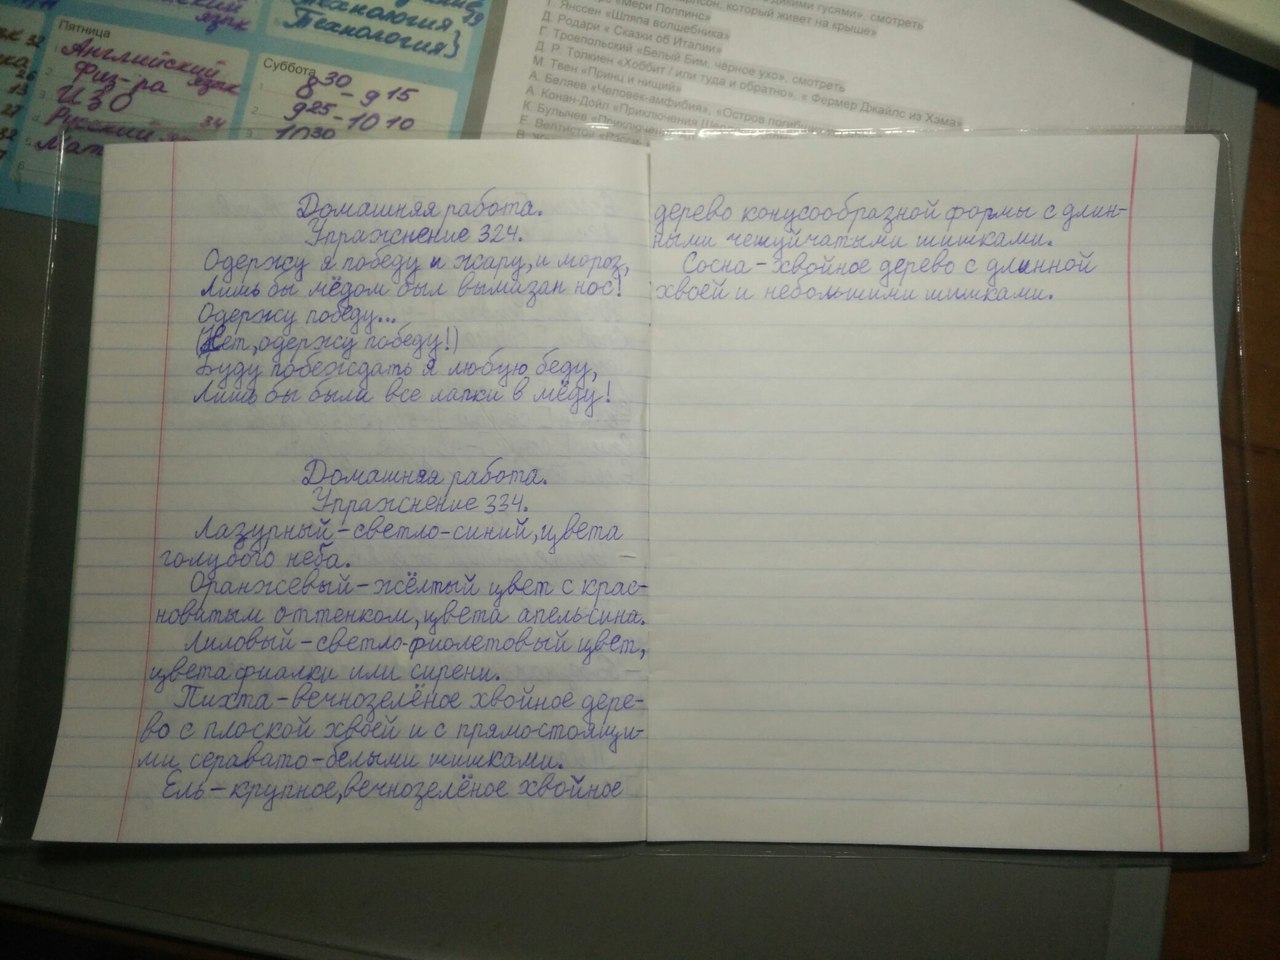 язык
Технология}
Пятница
Английский
язык
Физ-ра
ИЗО
Русский
34
Мат
Суббота
8 30 - 9 15
9 25 - 10 10
10 30
дикими гусями», смотреть
который живет на крыше»
«Мери Поппинс»
Т. Янссен «Шляпа волшебника»
Д. Родари « Сказки об Италии»
Г. Троепольский «Белый Бим, черное ухо», смотреть
Д. Р. Толкиен «Хоббит / или туда и обратно», « Фермер Джайлс из Хэма»
М. Твен «Принц и нищий»
А. Беляев «Человек-амфибия», «Остров погибших
А. Конан-Дойл «Приключения
К. Булычев «Приключения
Е. Велтистов
Домашняя работа.
Упражнение 324.
Одержу я победу и жару, и мороз,
Лишь бы мёдом был вымазан нос!
Одержу победу...
(Нет, одержу победу!)
Буду побеждать я любую беду,
Лишь бы были все лапки в мёду!
Домашняя работа.
Упражнение 334.
Лазурный – светло-синий, цвета
голубого неба.
Оранжевый – жёлтый цвет с крас-
новатым оттенком, цвета апельсина.
Лиловый – светло-фиолетовый цвет,
цвета фиалки или сирени.
Пихта – вечнозелёное хвойное дере-
во с плоской хвоей и с прямостоящи-
ми серавато-белыми шишками.
Ель – крупное, вечнозелёное хвойное
дерево конусообразной формы с длин-
ными чешуйчатыми шишками.
Сосна – хвойное дерево с длинной
хвоей и небольшими шишками.